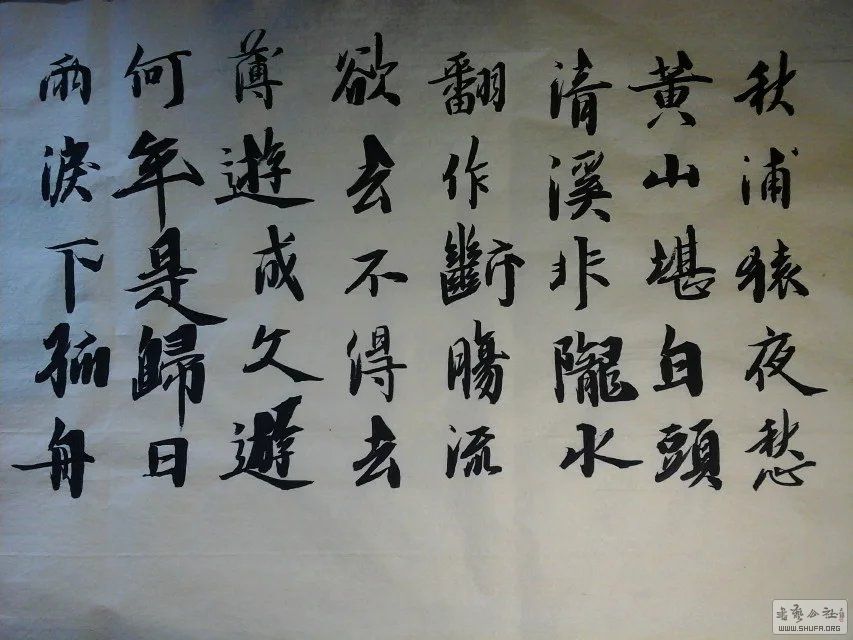 秋浦猿夜愁
黄山堪白頭
清溪非隴水
翻作斷腸流
欲去不得去
薄遊成久遊
何年是歸日
雨淚下孤舟
書藝公社
WWW.SHUFA.ORG